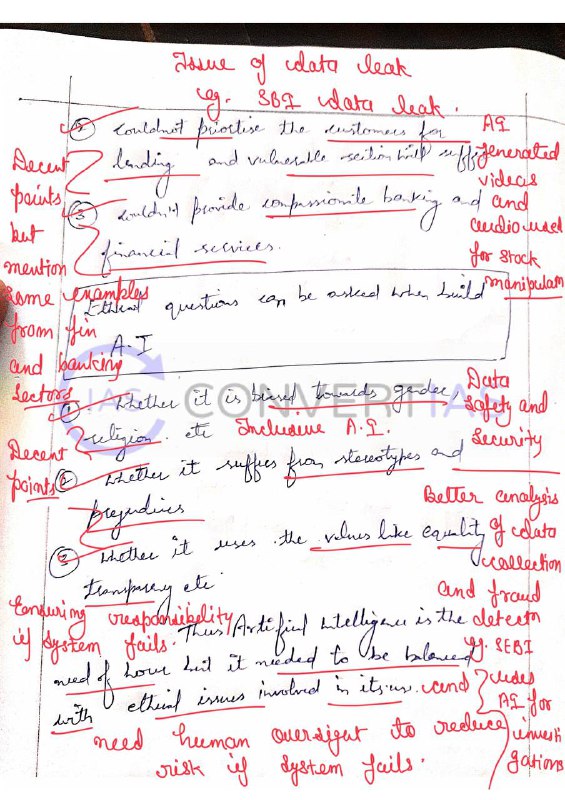 Issue of data leak
eg. SBI data leak.
② couldnot priortise the customers for
lending and vulnerable section will suffer
③ couldn't provide compassionate banking and
financial services.
Decent
points
but
mention
some examples
from fin
and banking
Sectors
AI
generated
videos
and
audio used
for stock
manipulatn
Ethical questions can be asked when build
A.I
CONVERTIAS
① Whether it is biased towards gender,
religion etc Inclusive A.I.
② Whether it suffers from stereotypes and
prejudices
③ Whether it uses the values like equality
transparency etc
Decent
points
Data
safety and
Security
Better analysis
of data
collection
and fraud
detectn
eg. SEBI
uses
AI for
investi
gations
Ensuring responsibility
if system fails.
Thus Artificial Intelligence is the
need of hour but it needed to be balanced
with ethical issues involved in its use and
need human oversight to reduce
risk if system fails.